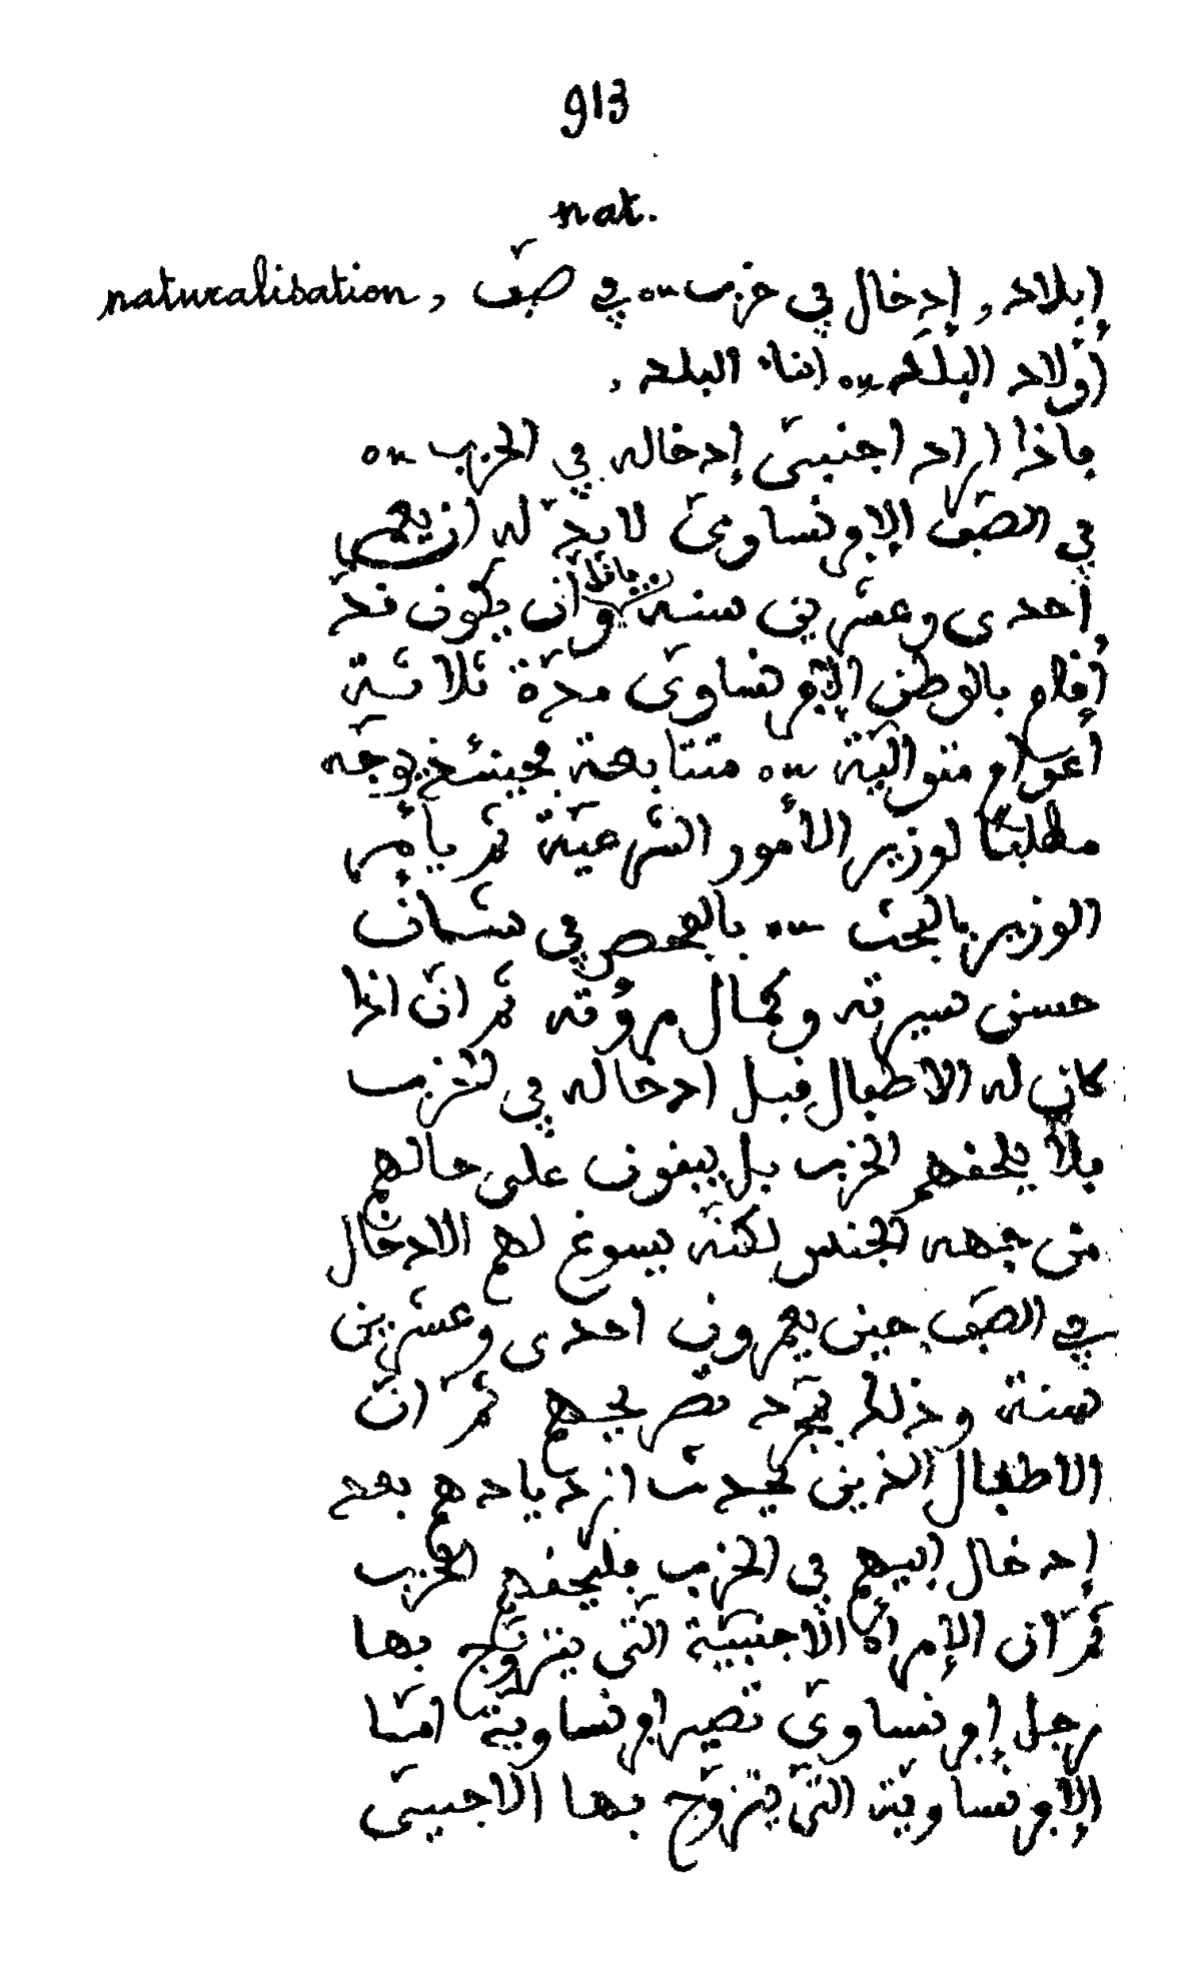 913
nat.
naturalisation, إبلاد, إدخال في حزب ou في صف
أولاد البلد ou ابناء البلد,
فاذا اراد اجنبي إدخاله في الحزب ou
في الصف الإفرنساوي لا بد له ان يعمر
إحدى وعشرين سنه فاقلا وأن يكون قد
أقام بالوطن الإفرنساوي مدة ثلاثة
أعوام متوالية ou متتابعة فحينئذ يوجه
مطلبا لوزير الأمور الشرعية ثم يأمر
الوزير بالبحث ou بالفحص في شأن
حسن سيرته وكمال مروئته ثم ان اذا
كان له الاطفال قبل ادخاله في الحزب
فلا يلحقهم الحزب بل يبقون على حالهم
من جهه الجنس لكنه يسوغ لهم الادخال
في الصف حين يعمرون احدى وعشرين
سنة وذلك بمجرد تصريحهم ثم ان
الاطفال الذين يحدث ازديادهم بعد
إدخال ابيهم في الحزب فليحقهم الحزب
ثم ان الإمرأة الاجنبية التي يتزوج بها
رجل إفرنساوي تصير افرنساوية اما
الإفرنساوية التي يتزوج بها الاجنبي